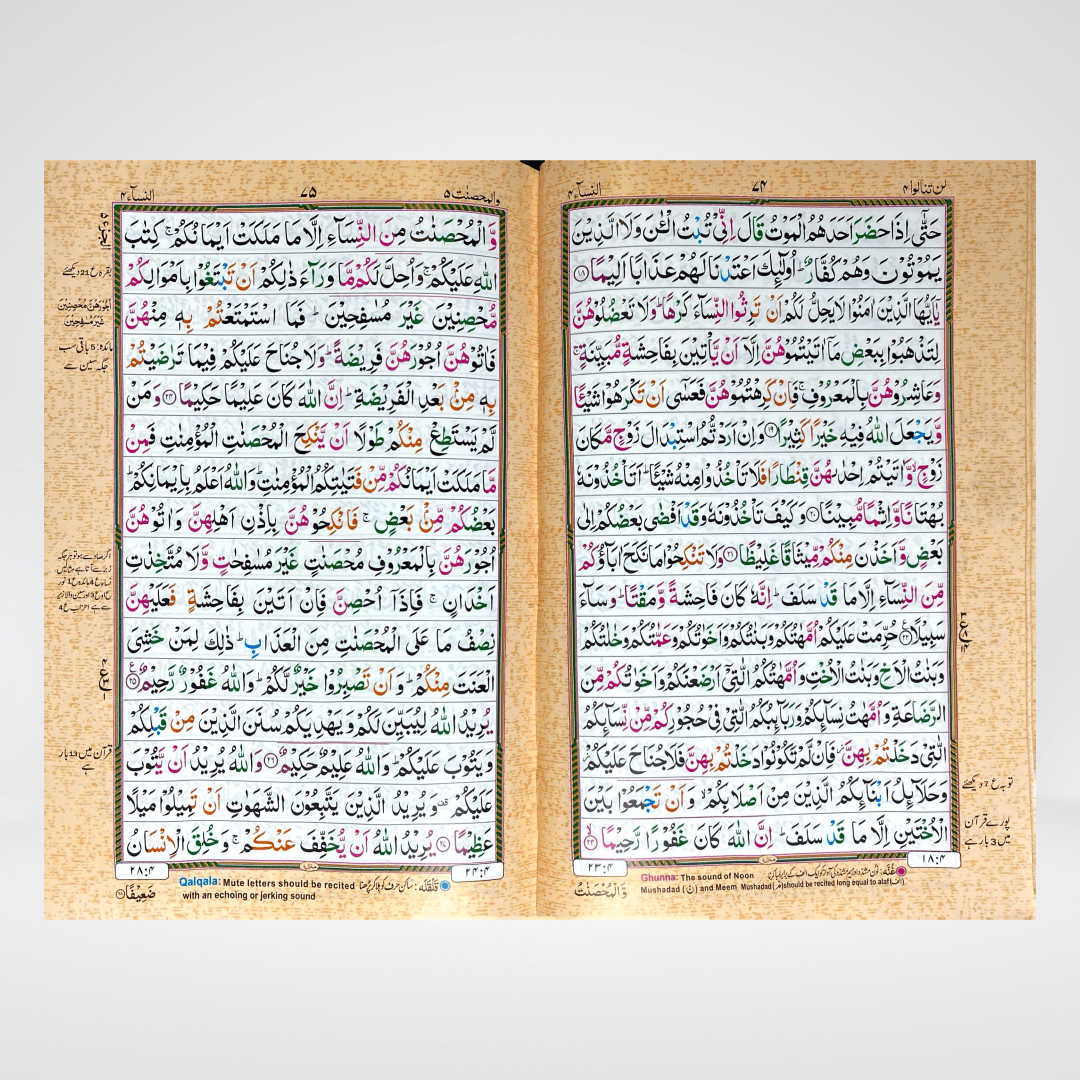 لن تنالوا ۴
۷۴
النسآء ۴
حَتّٰۤى اِذَا حَضَرَ اَحَدَهُمُ الْمَوْتُ قَالَ اِنِّیْ تُبْتُ الْـٰٔنَ وَلَا الَّذِیْنَ
یَمُوْتُوْنَ وَهُمْ كُفَّارٌ ؕ اُولٰٓىِٕكَ اَعْتَدْنَا لَهُمْ عَذَابًا اَلِیْمًا ﴿۱۸﴾
یٰۤاَیُّهَا الَّذِیْنَ اٰمَنُوْا لَا یَحِلُّ لَكُمْ اَنْ تَرِثُوا النِّسَآءَ كَرْهًا ؕ وَلَا تَعْضُلُوْهُنَّ
لِتَذْهَبُوْا بِبَعْضِ مَاۤ اٰتَیْتُمُوْهُنَّ اِلَّاۤ اَنْ یَّاْتِیْنَ بِفَاحِشَةٍ مُّبَیِّنَةٍ ۚ
وَعَاشِرُوْهُنَّ بِالْمَعْرُوْفِ ۚ فَاِنْ كَرِهْتُمُوْهُنَّ فَعَسٰۤى اَنْ تَكْرَهُوْا شَیْـًٔا
وَّیَجْعَلَ اللّٰهُ فِیْهِ خَیْرًا كَثِیْرًا ﴿۱۹﴾ وَاِنْ اَرَدْتُّمُ اسْتِبْدَالَ زَوْجٍ مَّكَانَ
زَوْجٍ ۙ وَّاٰتَیْتُمْ اِحْدٰىهُنَّ قِنْطَارًا فَلَا تَاْخُذُوْا مِنْهُ شَیْـًٔا ؕ اَتَاْخُذُوْنَهٗ
بُهْتَانًا وَّاِثْمًا مُّبِیْنًا ﴿۲۰﴾ وَكَیْفَ تَاْخُذُوْنَهٗ وَقَدْ اَفْضٰى بَعْضُكُمْ اِلٰى
بَعْضٍ وَّاَخَذْنَ مِنْكُمْ مِّیْثَاقًا غَلِیْظًا ﴿۲۱﴾ وَلَا تَنْكِحُوْا مَا نَكَحَ اٰبَآؤُكُمْ
مِّنَ النِّسَآءِ اِلَّا مَا قَدْ سَلَفَ ؕ اِنَّهٗ كَانَ فَاحِشَةً وَّمَقْتًا ؕ وَسَآءَ
سَبِیْلًا ﴿۲۲﴾ حُرِّمَتْ عَلَیْكُمْ اُمَّهٰتُكُمْ وَبَنٰتُكُمْ وَاَخَوٰتُكُمْ وَعَمّٰتُكُمْ وَخٰلٰتُكُمْ
وَبَنٰتُ الْاَخِ وَبَنٰتُ الْاُخْتِ وَاُمَّهٰتُكُمُ الّٰتِیْۤ اَرْضَعْنَكُمْ وَاَخَوٰتُكُمْ مِّنَ
الرَّضَاعَةِ وَاُمَّهٰتُ نِسَآىِٕكُمْ وَرَبَآىِٕبُكُمُ الّٰتِیْ فِیْ حُجُوْرِكُمْ مِّنْ نِّسَآىِٕكُمُ
الّٰتِیْ دَخَلْتُمْ بِهِنَّ ؗ فَاِنْ لَّمْ تَكُوْنُوْا دَخَلْتُمْ بِهِنَّ فَلَا جُنَاحَ عَلَیْكُمْ ؗ
وَحَلَآىِٕلُ اَبْنَآىِٕكُمُ الَّذِیْنَ مِنْ اَصْلَابِكُمْ ۙ وَاَنْ تَجْمَعُوْا بَیْنَ
الْاُخْتَیْنِ اِلَّا مَا قَدْ سَلَفَ ؕ اِنَّ اللّٰهَ كَانَ غَفُوْرًا رَّحِیْمًا ﴿۲۳﴾
توبہ ع 7 دیکھئے
پورے قرآن
میں 3 بار ہے
۱۸:۴
۲۳:۴
Ghunna: The sound of Noon
Mushadad (نّ) and Meem Mushadad (مّ) should be recited long equal to alaf (الف)
وَّالْمُحْصَنٰتُ
والمحصنٰت ۵
۷۵
النسآء ۴
وَّالْمُحْصَنٰتُ مِنَ النِّسَآءِ اِلَّا مَا مَلَكَتْ اَیْمَانُكُمْ ۚ كِتٰبَ
اللّٰهِ عَلَیْكُمْ ۚ وَاُحِلَّ لَكُمْ مَّا وَرَآءَ ذٰلِكُمْ اَنْ تَبْتَغُوْا بِاَمْوَالِكُمْ
مُّحْصِنِیْنَ غَیْرَ مُسٰفِحِیْنَ ؕ فَمَا اسْتَمْتَعْتُمْ بِهٖ مِنْهُنَّ
فَاٰتُوْهُنَّ اُجُوْرَهُنَّ فَرِیْضَةً ؕ وَلَا جُنَاحَ عَلَیْكُمْ فِیْمَا تَرٰضَیْتُمْ
بِهٖ مِنْۢ بَعْدِ الْفَرِیْضَةِ ؕ اِنَّ اللّٰهَ كَانَ عَلِیْمًا حَكِیْمًا ﴿۲۴﴾ وَمَنْ
لَّمْ یَسْتَطِعْ مِنْكُمْ طَوْلًا اَنْ یَّنْكِحَ الْمُحْصَنٰتِ الْمُؤْمِنٰتِ فَمِنْ
مَّا مَلَكَتْ اَیْمَانُكُمْ مِّنْ فَتَیٰتِكُمُ الْمُؤْمِنٰتِ ؕ وَاللّٰهُ اَعْلَمُ بِاِیْمَانِكُمْ ؕ
بَعْضُكُمْ مِّنْۢ بَعْضٍ ۚ فَانْكِحُوْهُنَّ بِاِذْنِ اَهْلِهِنَّ وَاٰتُوْهُنَّ
اُجُوْرَهُنَّ بِالْمَعْرُوْفِ مُحْصَنٰتٍ غَیْرَ مُسٰفِحٰتٍ وَّلَا مُتَّخِذٰتِ
اَخْدَانٍ ۚ فَاِذَاۤ اُحْصِنَّ فَاِنْ اَتَیْنَ بِفَاحِشَةٍ فَعَلَیْهِنَّ
نِصْفُ مَا عَلَى الْمُحْصَنٰتِ مِنَ الْعَذَابِ ؕ ذٰلِكَ لِمَنْ خَشِیَ
الْعَنَتَ مِنْكُمْ ؕ وَاَنْ تَصْبِرُوْا خَیْرٌ لَّكُمْ ؕ وَاللّٰهُ غَفُوْرٌ رَّحِیْمٌ ﴿۲۵﴾
یُرِیْدُ اللّٰهُ لِیُبَیِّنَ لَكُمْ وَیَهْدِیَكُمْ سُنَنَ الَّذِیْنَ مِنْ قَبْلِكُمْ
وَیَتُوْبَ عَلَیْكُمْ ؕ وَاللّٰهُ عَلِیْمٌ حَكِیْمٌ ﴿۲۶﴾ وَاللّٰهُ یُرِیْدُ اَنْ یَّتُوْبَ
عَلَیْكُمْ ۫ وَیُرِیْدُ الَّذِیْنَ یَتَّبِعُوْنَ الشَّهَوٰتِ اَنْ تَمِیْلُوْا مَیْلًا
عَظِیْمًا ﴿۲۷﴾ یُرِیْدُ اللّٰهُ اَنْ یُّخَفِّفَ عَنْكُمْ ۚ وَخُلِقَ الْاِنْسَانُ
بقرہ ع 21 دیکھئے
اُجُوْرَهُنَّ مُحْصِنِیْنَ
غَیْرَ مُسٰفِحِیْنَ
مائدہ: 5 باقی سب
جگہ سین سے
قرآن میں 13 بار
ہے
۲۴:۴
۲۸:۴
Qalqala: Mute letters should be recited
with an echoing or jerking sound
ضَعِیْفًا ﴿۲۸﴾